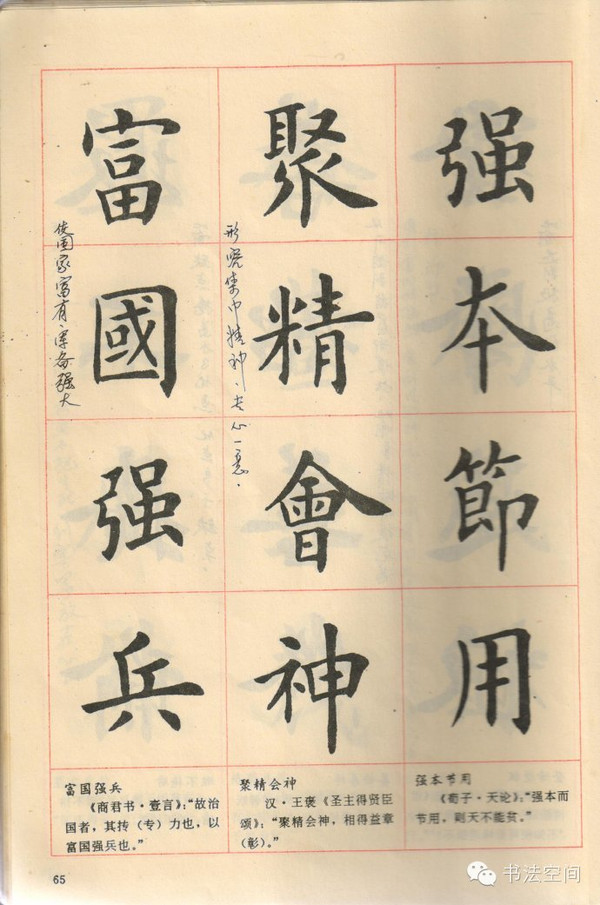 强本節用
聚精會神
富國强兵
形容集中精神，专心一意。
使国家富有，军备强大
富国强兵
《商君书·壹言》：“故治
国者，其抟（专）力也，以
富国强兵也。”
聚精会神
汉·王褒《圣主得贤臣
颂》：“聚精会神，相得益章
（彰）。”
强本节用
《荀子·天论》：“强本而
节用，则天不能贫。”
65
书法空间